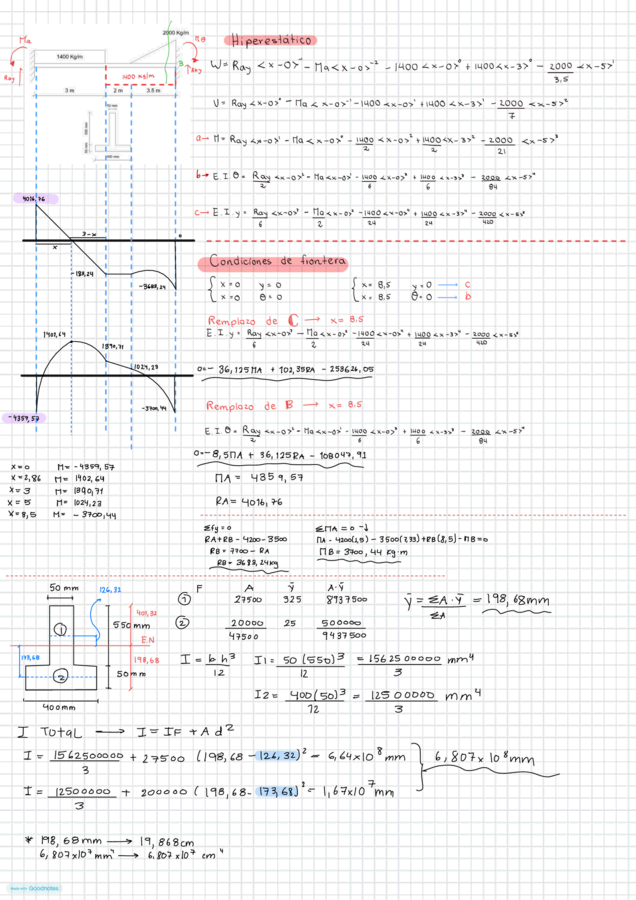 2000 Kg/m
Ma
MB
1400 Kg/m
B
Ray
Ray
1400 kg/m
3 m
2 m
3.5 m
Hiperestático
W = Ray <x-0>⁻¹ - Ma <x-0>⁻² - 1400 <x-0>⁰ + 1400 <x-3>⁰ - 2000/3,5 <x-5>¹
V = Ray <x-0>⁰ - Ma <x-0>⁻¹ - 1400 <x-0>¹ + 1400 <x-3>¹ - 2000/7 <x-5>²
a → M = Ray <x-0>¹ - Ma <x-0>⁰ - 1400/2 <x-0>² + 1400/2 <x-3>² - 2000/21 <x-5>³
b → E.I.θ = Ray/2 <x-0>² - Ma <x-0>¹ - 1400/6 <x-0>³ + 1400/6 <x-3>³ - 2000/84 <x-5>⁴
c → E.I.y = Ray/6 <x-0>³ - Ma/2 <x-0>² - 1400/24 <x-0>⁴ + 1400/24 <x-3>⁴ - 2000/420 <x-5>⁵
4016,76
3-x
x
-180,24
-3683,24
Condiciones de frontera
x=0 y=0
x=0 θ=0
x= 8,5 y=0 → c
x= 8,5 θ=0 → b
Remplazo de C → x= 8.5
E.I y = Ray/6 <x-0>³ - Ma/2 <x-0>² - 1400/24 <x-0>⁴ + 1400/24 <x-3>⁴ - 2000/420 <x-5>⁵
0= - 36,125MA + 102,35RA - 253626,05
Remplazo de B → x= 8.5
E.I.θ = Ray/2 <x-0>² - Ma <x-0>¹ - 1400/6 <x-0>³ + 1400/6 <x-3>³ - 2000/84 <x-5>⁴
0= -8,5MA + 36,125RA - 108047,91
MA = 4359,57
RA= 4016,76
1402,64
1390,71
1024,23
-4359,57
-3700,44
x=0 M= -4359,57
x=2,86 M= 1402,64
x= 3 M= 1390,71
x= 5 M= 1024,23
x= 8,5 M= - 3700,44
Σfy=0
RA+RB -4200-3500
RB= 7700 - RA
RB= 3683,24kg
ΣMA =0
MA - 4200(1,5) - 3500(7,33)+RB(8,5)-MB=0
MB= 3700,44 kg·m
50 mm
126,32
401,32
550mm
1
EN
173,68
198,68
2
50mm
400mm
F A ȳ A·ȳ
1 27500 325 8937500
2 20000 25 500000
47500 9437500
ȳ = ΣA·ȳ/ΣA = 198,68mm
I = b h³/12 I1 = 50(550)³/12 = 1562500000/3 mm⁴
I2 = 400(50)³/12 = 12500000/3 mm⁴
I Total → I = IF + A d²
I = 1562500000/3 + 27500 (198,68 - 126,32)² = 6,64x10⁸ mm
6,807x10⁸mm
I = 12500000/3 + 200000 (198,68- 173,68)² = 1,67x10⁷ mm
* 198,68mm → 19,868cm
6,807x10⁷mm⁴ → 6.807x10⁷ cm⁴
Made with Goodnotes